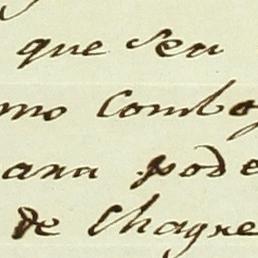 que seu
mo Combo
ana pode
de Chagre